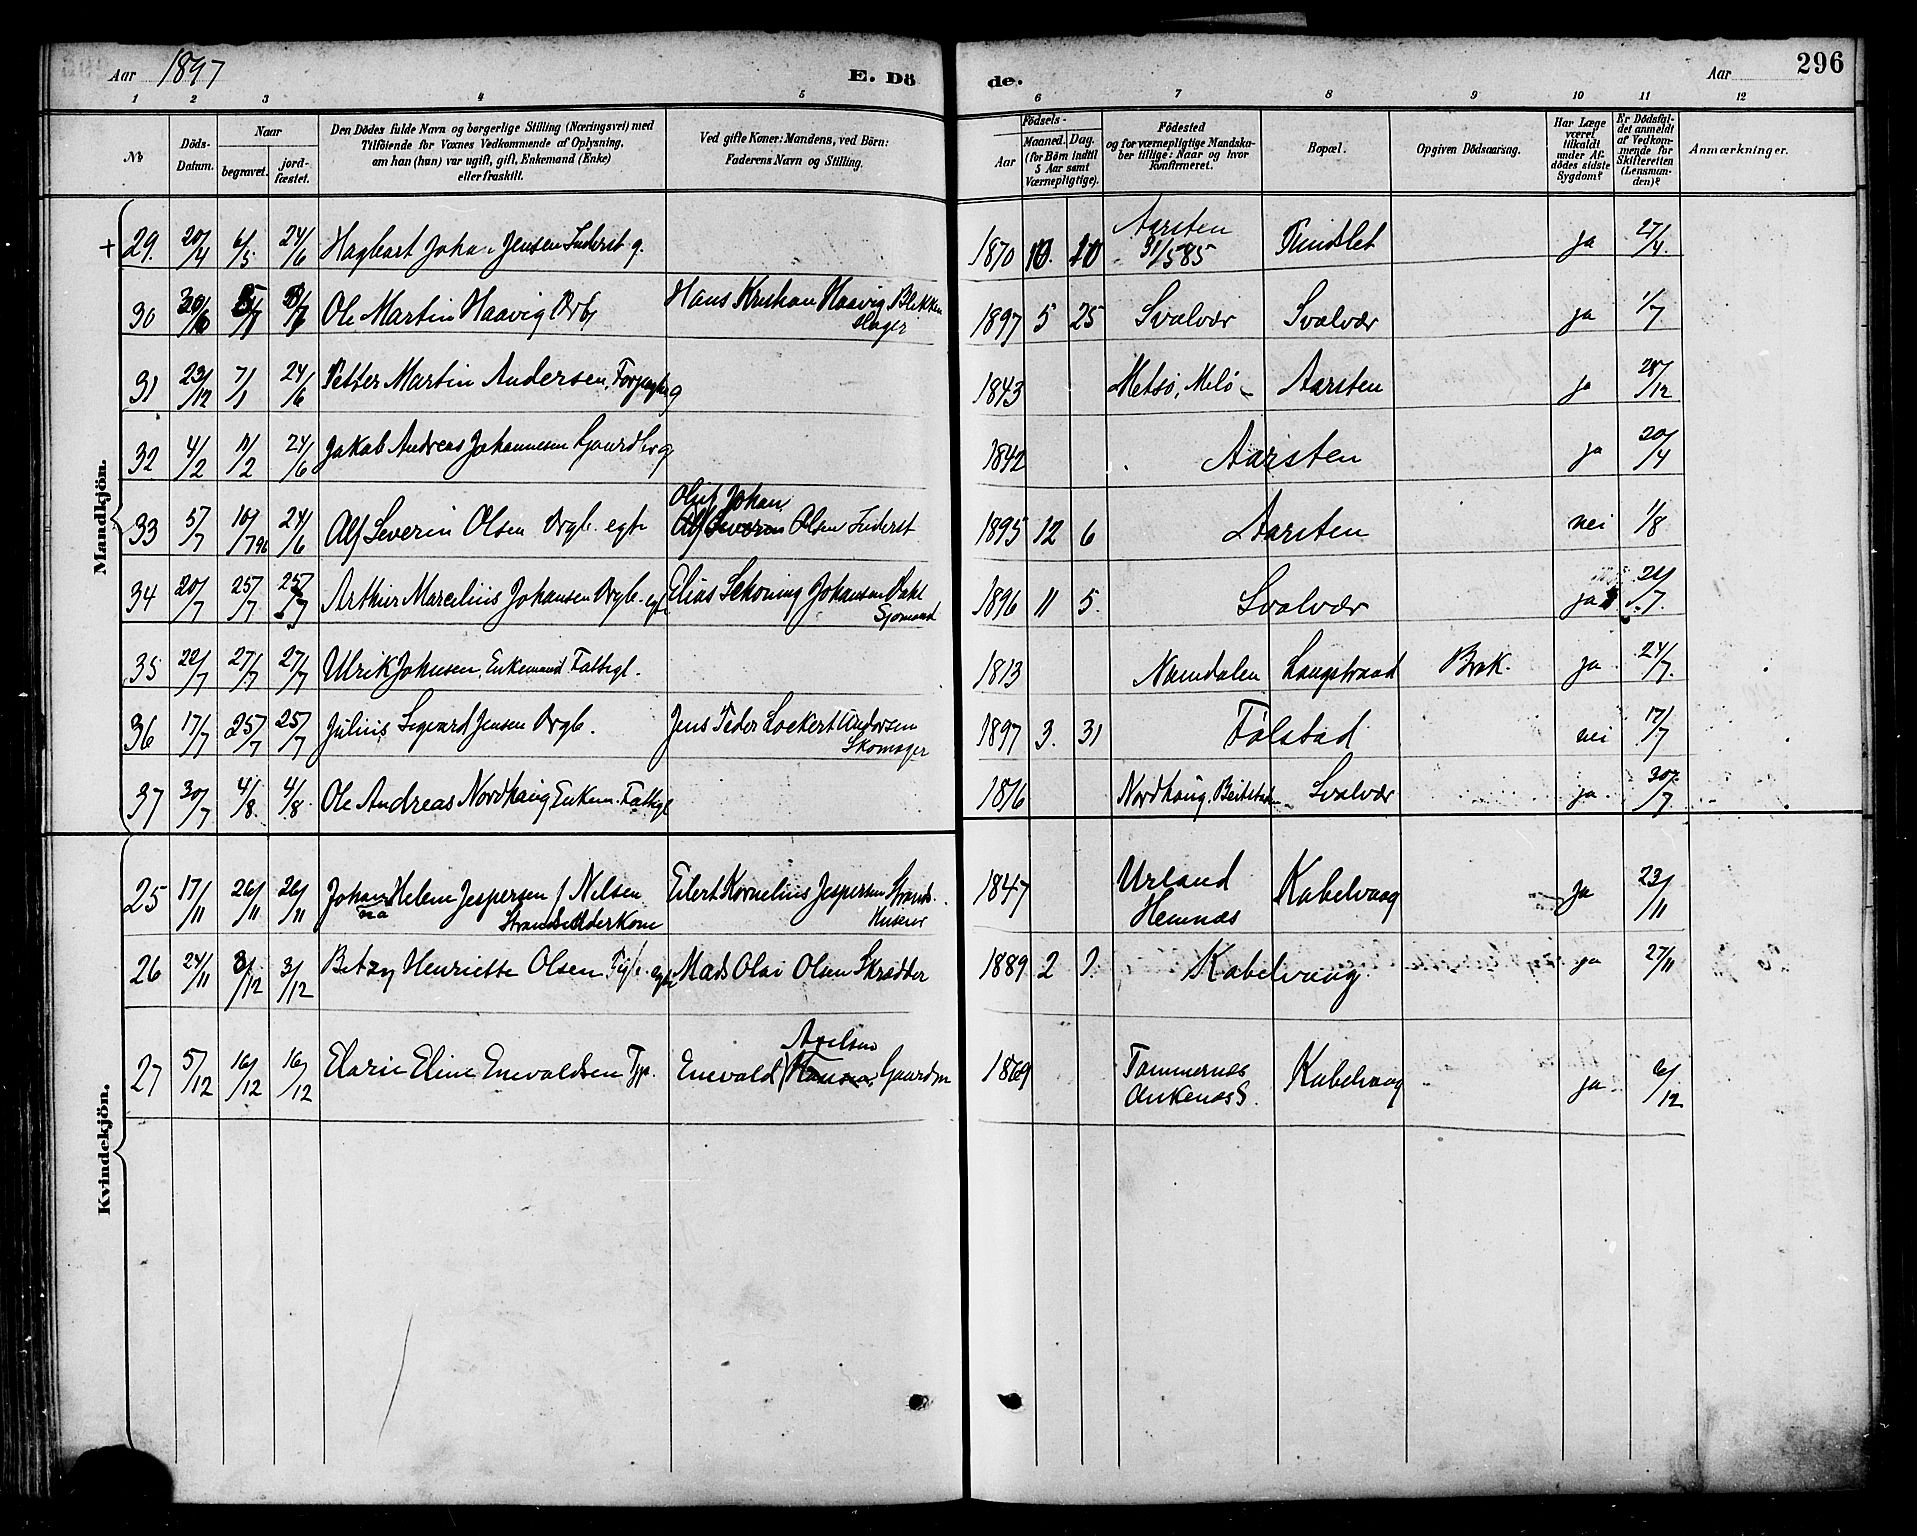 Aar 1897 E. Dö de. Aar 296
1 2 3 4 5 6 7 8 9 10 11 12
No
Döds-Datum.
Naar
begravet. jord-fæstet.
Den Dödes fulde Navn og borgerlige Stilling (Næringsvei) med
Tilföiende for Voxnes Vedkommende af Oplysning,
om han (hun) var ugift, gift, Enkemand (Enke)
eller fraskilt.
Ved gifte Koner: Mandens, ved Börn:
Faderens Navn og Stilling.
Födsels-
Aar Maaned. Dag.
(for Börn indtil
5 Aar samt
Værnepligtige).
Födested
og for værnepligtige Mandska-
ber tillige: Naar og hvor
konfirmeret.
Bopæl.
Opgiven Dödsaarsag.
Har Læge
været
tilkaldt
under Af-
dödes sidste
Sygdom?
Er Dödsfal-
det anmeldt
af Vedkom-
mende for
Skifteretten
(Lensman-
den)?
Anmærkninger.
Mandkjön.
+ 29. 20/4 6/5 24/6 Hagbart Johan Jensen Inderst g. 1870 10. 10 Aarsten 31/5 85 Tindlet ja 27/4.
30 Ole Martin Haavig Hans Kristian Haavig Blikken
slager 1897 5 25 Svolvær Svolvær ja 1/7
31 23/12 7/1 24/6 Petter Martin Andersen, g 1843 Metsö, Melö Aarsten ja 28/12
32 4/2 11/2 24/6 Jakob Andreas Johannesen Gaardbr g 1842 Aarsten ja 20/4
Oluf Johan
33 5/7 10/7 96 24/6 Alf Severin Olsen Drgb. egte Alf Severin Olsen Inderst 1895 12 6 Aarsten nei 1/8
34 20/7 25/7 25/7 Arthur Marcelius Johansen Drgb. egte Elias Schöning Johansen Dahl
Sjömand 1896 11 5. Svolvær ja 21/7.
35 22/7 27/7 27/7 Ulrik Johnsen, Enkemand Fattigl. 1813 Namdalen Langstrand Brok. ja 24/7.
36 17/7 25/7 25/7 Julius Sigvard Jensen Drgb. Jens Peder Lockert Andersen
Skomager 1897 3. 31 Følstad nei 17/7
37 30/7 4/8. 4/8. Ole Andreas Nordhaug Enkem. Fattigl 1816 Nordhaug, Beitstaden Svolvær ja 30/7
Kvindekjön.
25 17/11 26/11 26/11 Johanna Helene Jespersen f Nilsen
Strandsidderkone Eilert Kornelius Jespersen Strand-
1847 Urland
Hemnæs Kabelvaag ja 23/11
26 24/11 3/12 3/12 Betzy Henriette Olsen Pige egte Mads Olai Olsen Skrædder 1889 2 Kabelvaag ja 27/11
Axelsen
27 5/12 16/12 16/12 Eline Enevaldsen Enevald Hansen Gaardm 1869
Ankenæs S. Kabelvaag ja 6/12